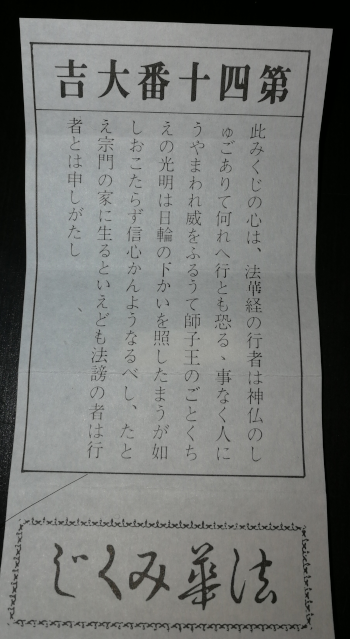 第四十番大吉
此みくじの心は、法華経の行者は神仏のし
ゅごありて何れへ行とも恐るゝ事なく人に
うやまわれ威をふるうて師子王のごとくち
えの光明は日輪の下かいを照したまうが如
しおこたらず信心かんようなるべし、たと
え宗門の家に生るといえども法謗の者は行
者とは申しがたし
法華みくじ